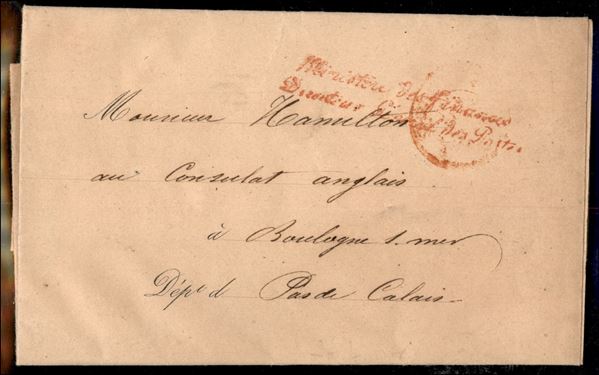 Ministère des Finances
Direction Génér. des Postes.
Monsieur Hamilton
au Consulat anglais
à Boulogne s. mer
Dépt. d Pas de Calais